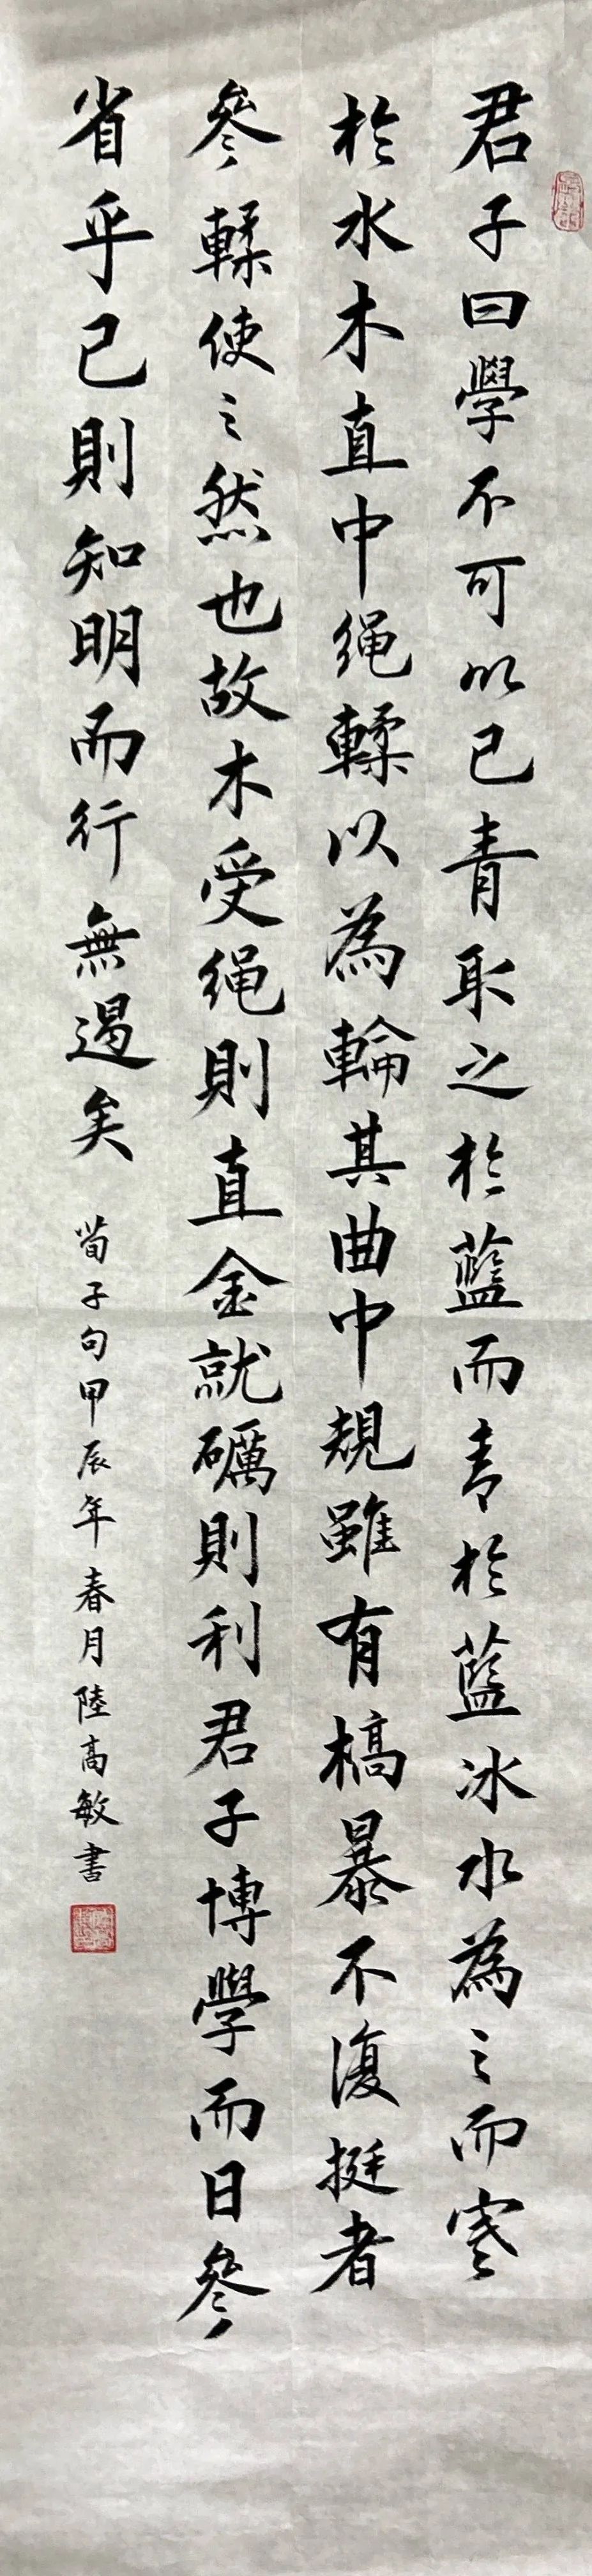 君子曰學不可以已青取之於藍而青於藍冰水為之而寒
於水木直中绳輮以為輪其曲中規雖有槁暴不復挺者
參輮使之然也故木受绳則直金就礪則利君子博學而日參
省乎己則知明而行無過矣
荀子句甲辰年春月陸高敏書